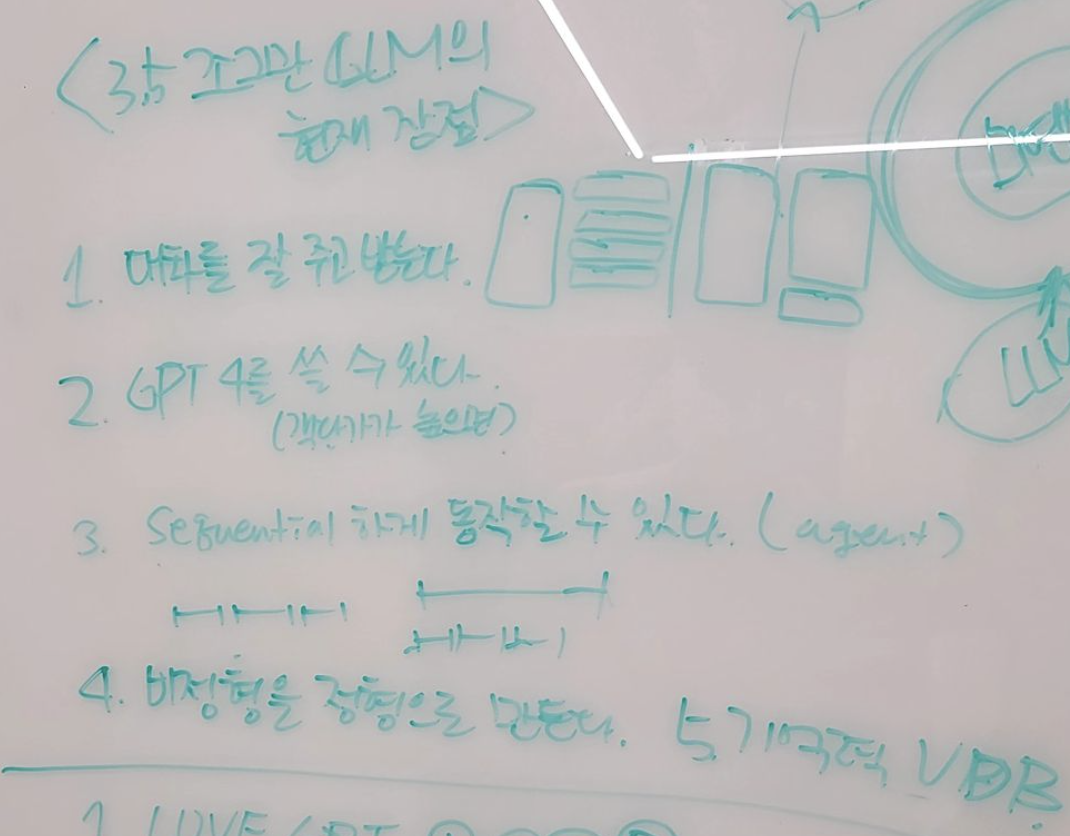 <3.5 조그만 LLM의
현재 장점>
1. 대화를 잘 주고 받는다.
2. GPT 4를 쓸 수 있다.
(객단가가 높으면)
3. Sequential 하게 동작할 수 있다. (agent)
4. 비정형을 정형으로 만든다. 5. 기억력 VDB